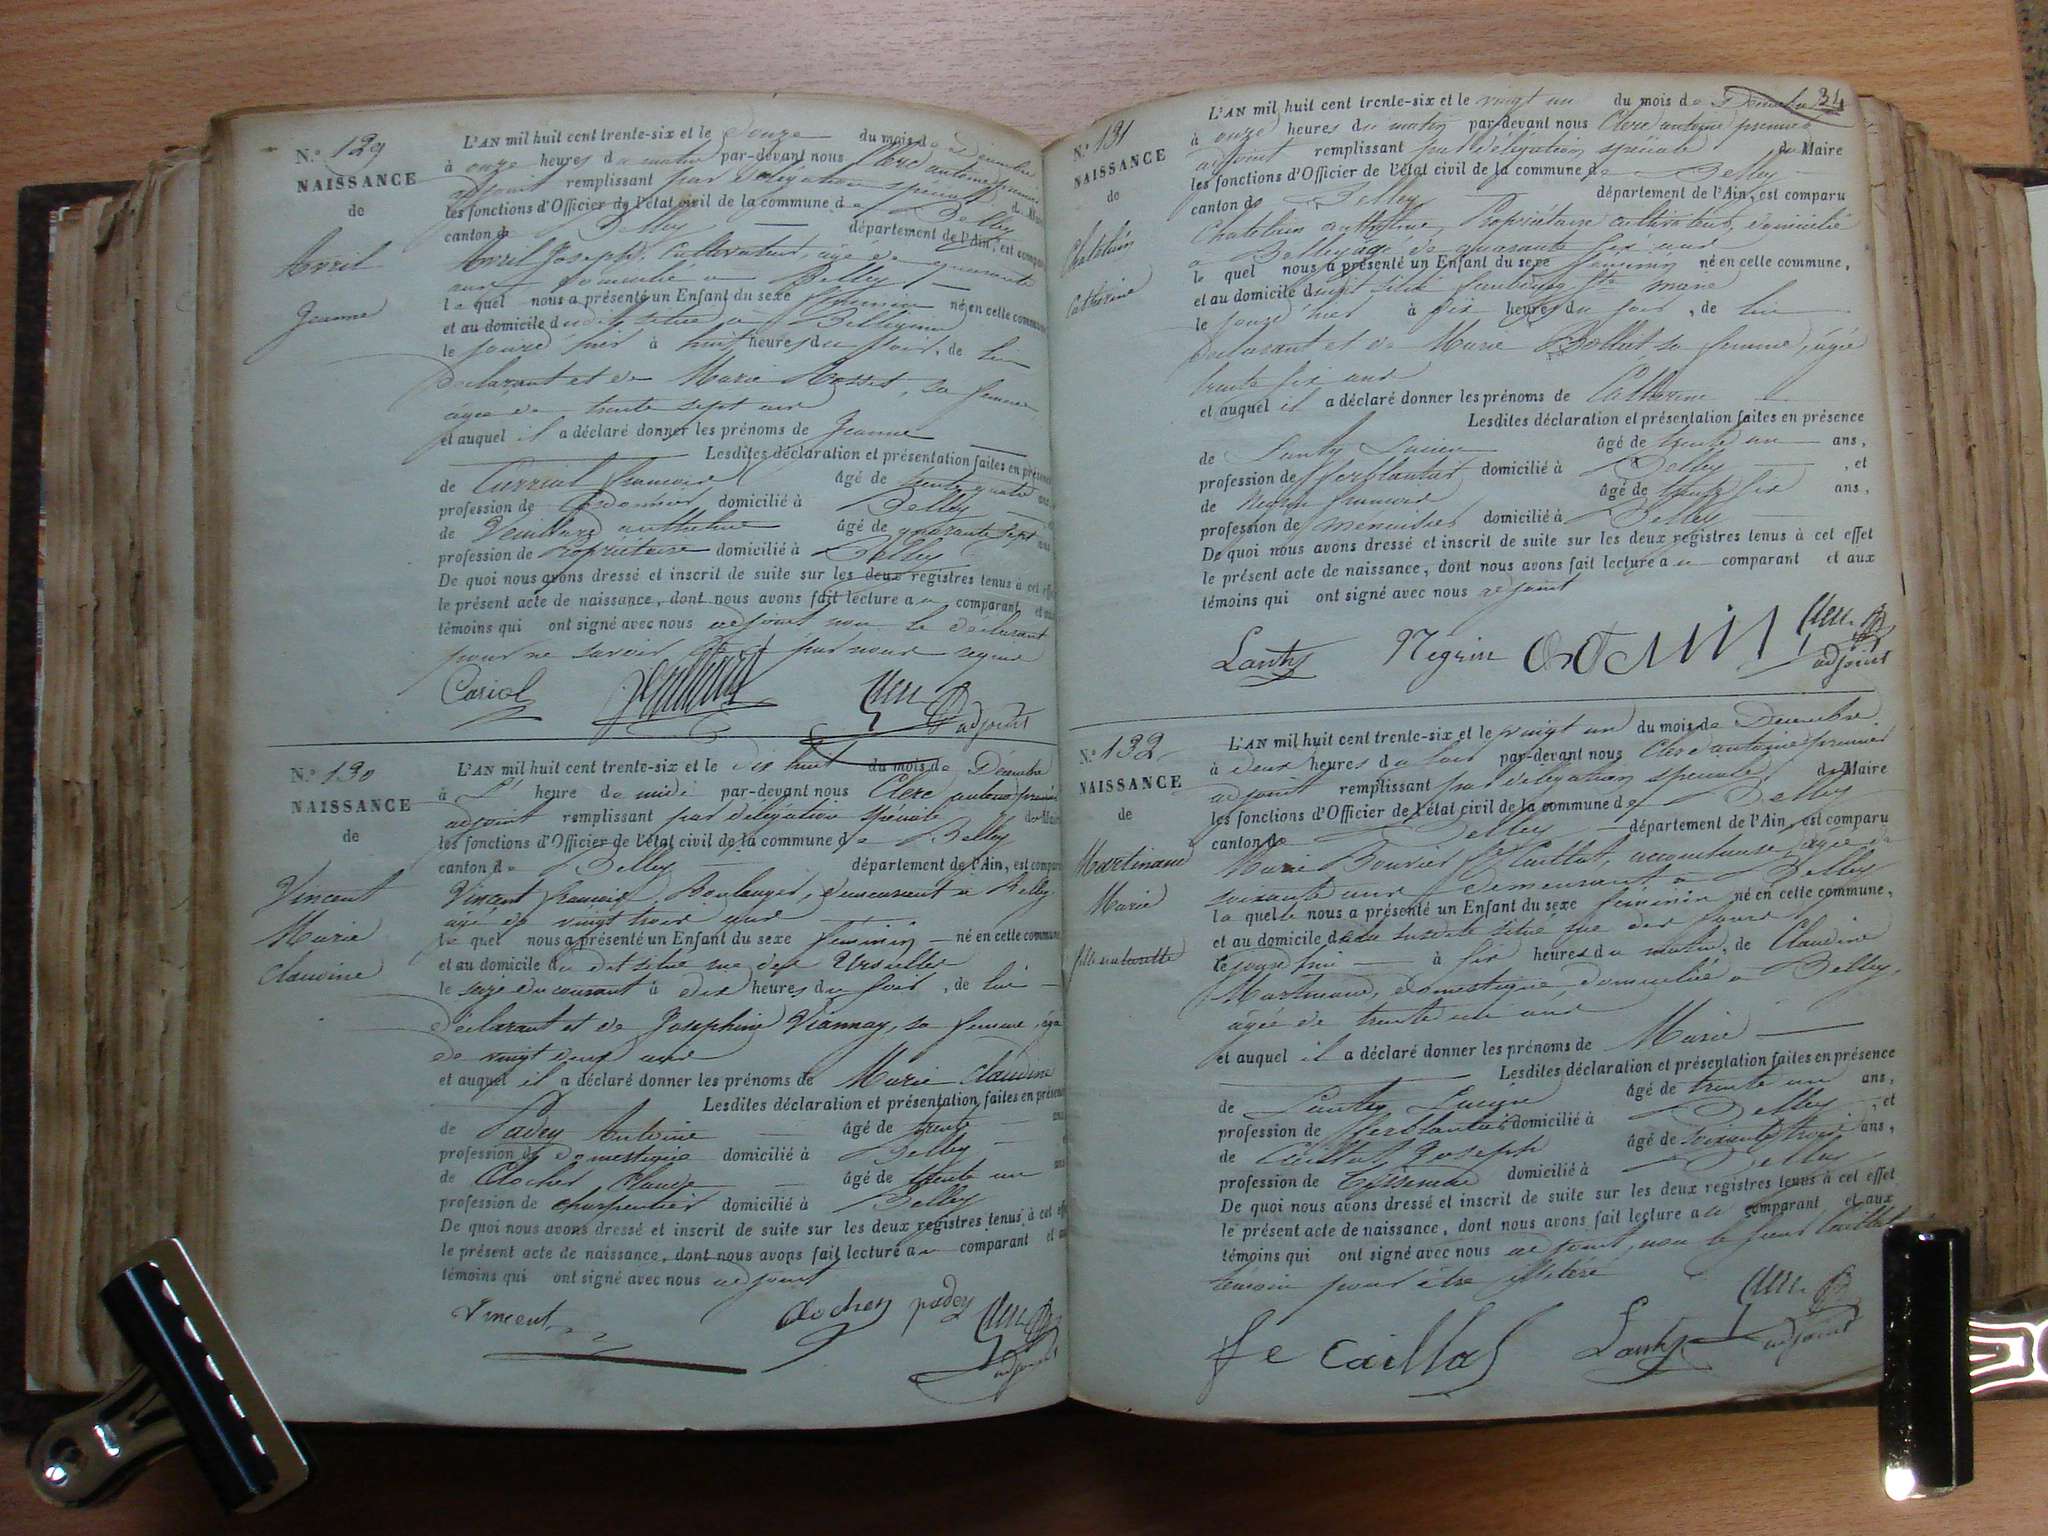 N.° 129
NAISSANCE
de
Avril
Jeanne
L'AN mil huit cent trente-six et le Douze du mois de Décembre
à onze heures du matin par-devant nous Clerc antoine premier
adjoint remplissant par délégation spéciale du Maire
les fonctions d'Officier de l'état civil de la commune de Belley
canton de Belley département de l'Ain, est comparu
Avril Joseph, Cultivateur, âgé de quarante
ans domicilié à Belley
le quel nous a présenté un Enfant du sexe féminin né en cette commune
et au domicile dudit situé à
le jour d'hier à huit heures du soir, de lui
déclarant et de Marie Mosset, sa femme
âgée de trente sept ans
et auquel il a déclaré donner les prénoms de Jeanne
Lesdites déclaration et présentation faites en présence
de françois âgé de trente quatre ans
profession de Cordonnier domicilié à Belley
de Veuillard anthelme âgé de quarante sept ans
profession de Propriétaire domicilié à Belley
De quoi nous avons dressé et inscrit de suite sur les deux registres tenus à cet effet
le présent acte de naissance, dont nous avons fait lecture au comparant et aux
témoins qui ont signé avec nous adjoint non le déclarant
pour ne savoir de ce par nous requis
Cariol
adjoint
N.° 130
NAISSANCE
de
Vincent
Marie
Claudine
L'AN mil huit cent trente-six et le dix huit du mois de Décembre
à L' heure de midi par-devant nous Clerc antoine premier
adjoint remplissant par délégation spéciale du Maire
les fonctions d'Officier de l'état civil de la commune de Belley
canton de Belley département de l'Ain, est comparu
Vincent françois, Boulanger, demeurant à Belley
âgé de vingt trois ans
le quel nous a présenté un Enfant du sexe féminin né en cette commune
et au domicile du dit situé rue des Ursulles
le seize du courant à dix heures du soir, de lui
déclarant et de Josephine Viannay, sa femme, âgée
de vingt deux ans
et auquel il a déclaré donner les prénoms de Marie Claudine
Lesdites déclaration et présentation faites en présence
de Padey Antoine âgé de trente ans
profession de domestique domicilié à Belley
de Clocher Claude âgé de trente un ans
profession de charpentier domicilié à Belley
De quoi nous avons dressé et inscrit de suite sur les deux registres tenus à cet effet
le présent acte de naissance, dont nous avons fait lecture au comparant et aux
témoins qui ont signé avec nous adjoint
Vincent Clocher padey
adjoint
34
N.° 131
NAISSANCE
de
Chatelain
Catherine
L'AN mil huit cent trente-six et le vingt un du mois de Décembre
à onze heures du matin par-devant nous Clerc antoine premier
adjoint remplissant par délégation spéciale du Maire
les fonctions d'Officier de l'état civil de la commune de Belley
canton de Belley département de l'Ain, est comparu
Chatelain anthelme, Propriétaire cultivateur, domicilié
à Belley âgé de quarante six ans
le quel nous a présenté un Enfant du sexe féminin né en cette commune,
et au domicile dudit situé faubourg Ste marie
le jour d'hier à six heures du soir, de lui
déclarant et de Marie Bollut sa femme, âgée
trente six ans
et auquel il a déclaré donner les prénoms de Catherine
Lesdites déclaration et présentation faites en présence
de Lanty Lucien âgé de trente un ans,
profession de fferblantier domicilié à Belley, et
de Negrin françois âgé de trente six ans,
profession de menuisier domicilié à Belley
De quoi nous avons dressé et inscrit de suite sur les deux registres tenus à cet effet
le présent acte de naissance, dont nous avons fait lecture au comparant et aux
témoins qui ont signé avec nous adjoint
Lanty Negrin
adjoint
N.° 132
NAISSANCE
de
Martinand
Marie
fille naturelle
L'AN mil huit cent trente-six et le vingt un du mois de Décembre
à deux heures du soir par-devant nous Clerc antoine premier
adjoint remplissant par délégation spéciale du Maire
les fonctions d'Officier de l'état civil de la commune de Belley
canton de Belley département de l'Ain, est comparu
Marie Bouvier fe Caillat, accoucheuse, âgée de
soixante ans demeurant à Belley
la quelle nous a présenté un Enfant du sexe féminin né en cette commune,
et au domicile de la susdite situé rue des fours
le jour d'hui à six heures du matin, de Claudine
Martinand, domestique, domiciliée à Belley,
âgée de trente un ans
et auquel il a déclaré donner les prénoms de Marie
Lesdites déclaration et présentation faites en présence
de Lanty Lucien âgé de trente un ans,
profession de fferblantier domicilié à Belley, et
de Caillat Joseph âgé de soixante trois ans,
profession de Tisserand domicilié à Belley
De quoi nous avons dressé et inscrit de suite sur les deux registres tenus à cet effet
le présent acte de naissance, dont nous avons fait lecture au comparant et aux
témoins qui ont signé avec nous adjoint, non le sieur Caillat
témoin pour être illitéré
fe Caillat Lanty
adjoint